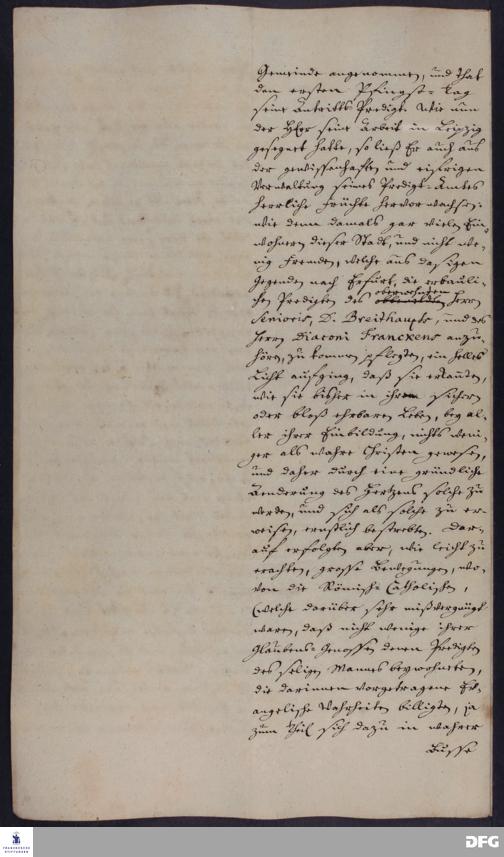 Gemeinde angenommen, und that
den ersten Pfingst-tag
seine Antritts Predigt. Wie nun
der HErr seine Arbeit in Leipzig
gesegnet hatte, so ließ Er auch aus
der gewissenhafften und eifrigen
Verwaltung seines Predigt-Amtes
herrliche Früchte hervor wachsen:
wie denn damals gar vielen Ein-
wohnern dieser Stadt, und nicht we-
nig Fremden, welche aus dasigen
Gegenden nach Erfurt, die erbauli-
chen Predigten des oberwehnten Herrn
Senioris, D. Breithaupts, und des
Herrn Diaconi Franckens anzu-
hören, zu kommen pflegten, ein helles
Licht aufging, daß sie erkanten,
wie sie bisher in ihrem sichern
oder bloß ehrbaren Leben, bey al-
ler ihrer Einbildung, nichts weni-
ger als wahre Christen gewesen,
und daher durch eine gründliche
Aenderung des Hertzens solche zu
werden, und sich als solche zu er-
weisen, ernstlich bestrebten. Dar-
auf erfolgten aber, wie leicht zu
erachten, grosse Bewegungen, wo-
von die Römisch-Catholischen,
(welche darüber sehr mißvergnügt
waren, daß nicht wenige ihrer
Glaubens-Genossen denen Predigten
des seligen Mannes beywohneten,
die darinnen vorgetragene Ev-
angelische Wahrheiten billigten, ja
zum theil sich dazu in wahrer
Busse
FRANCKESCHE
STIFTUNGEN
DFG